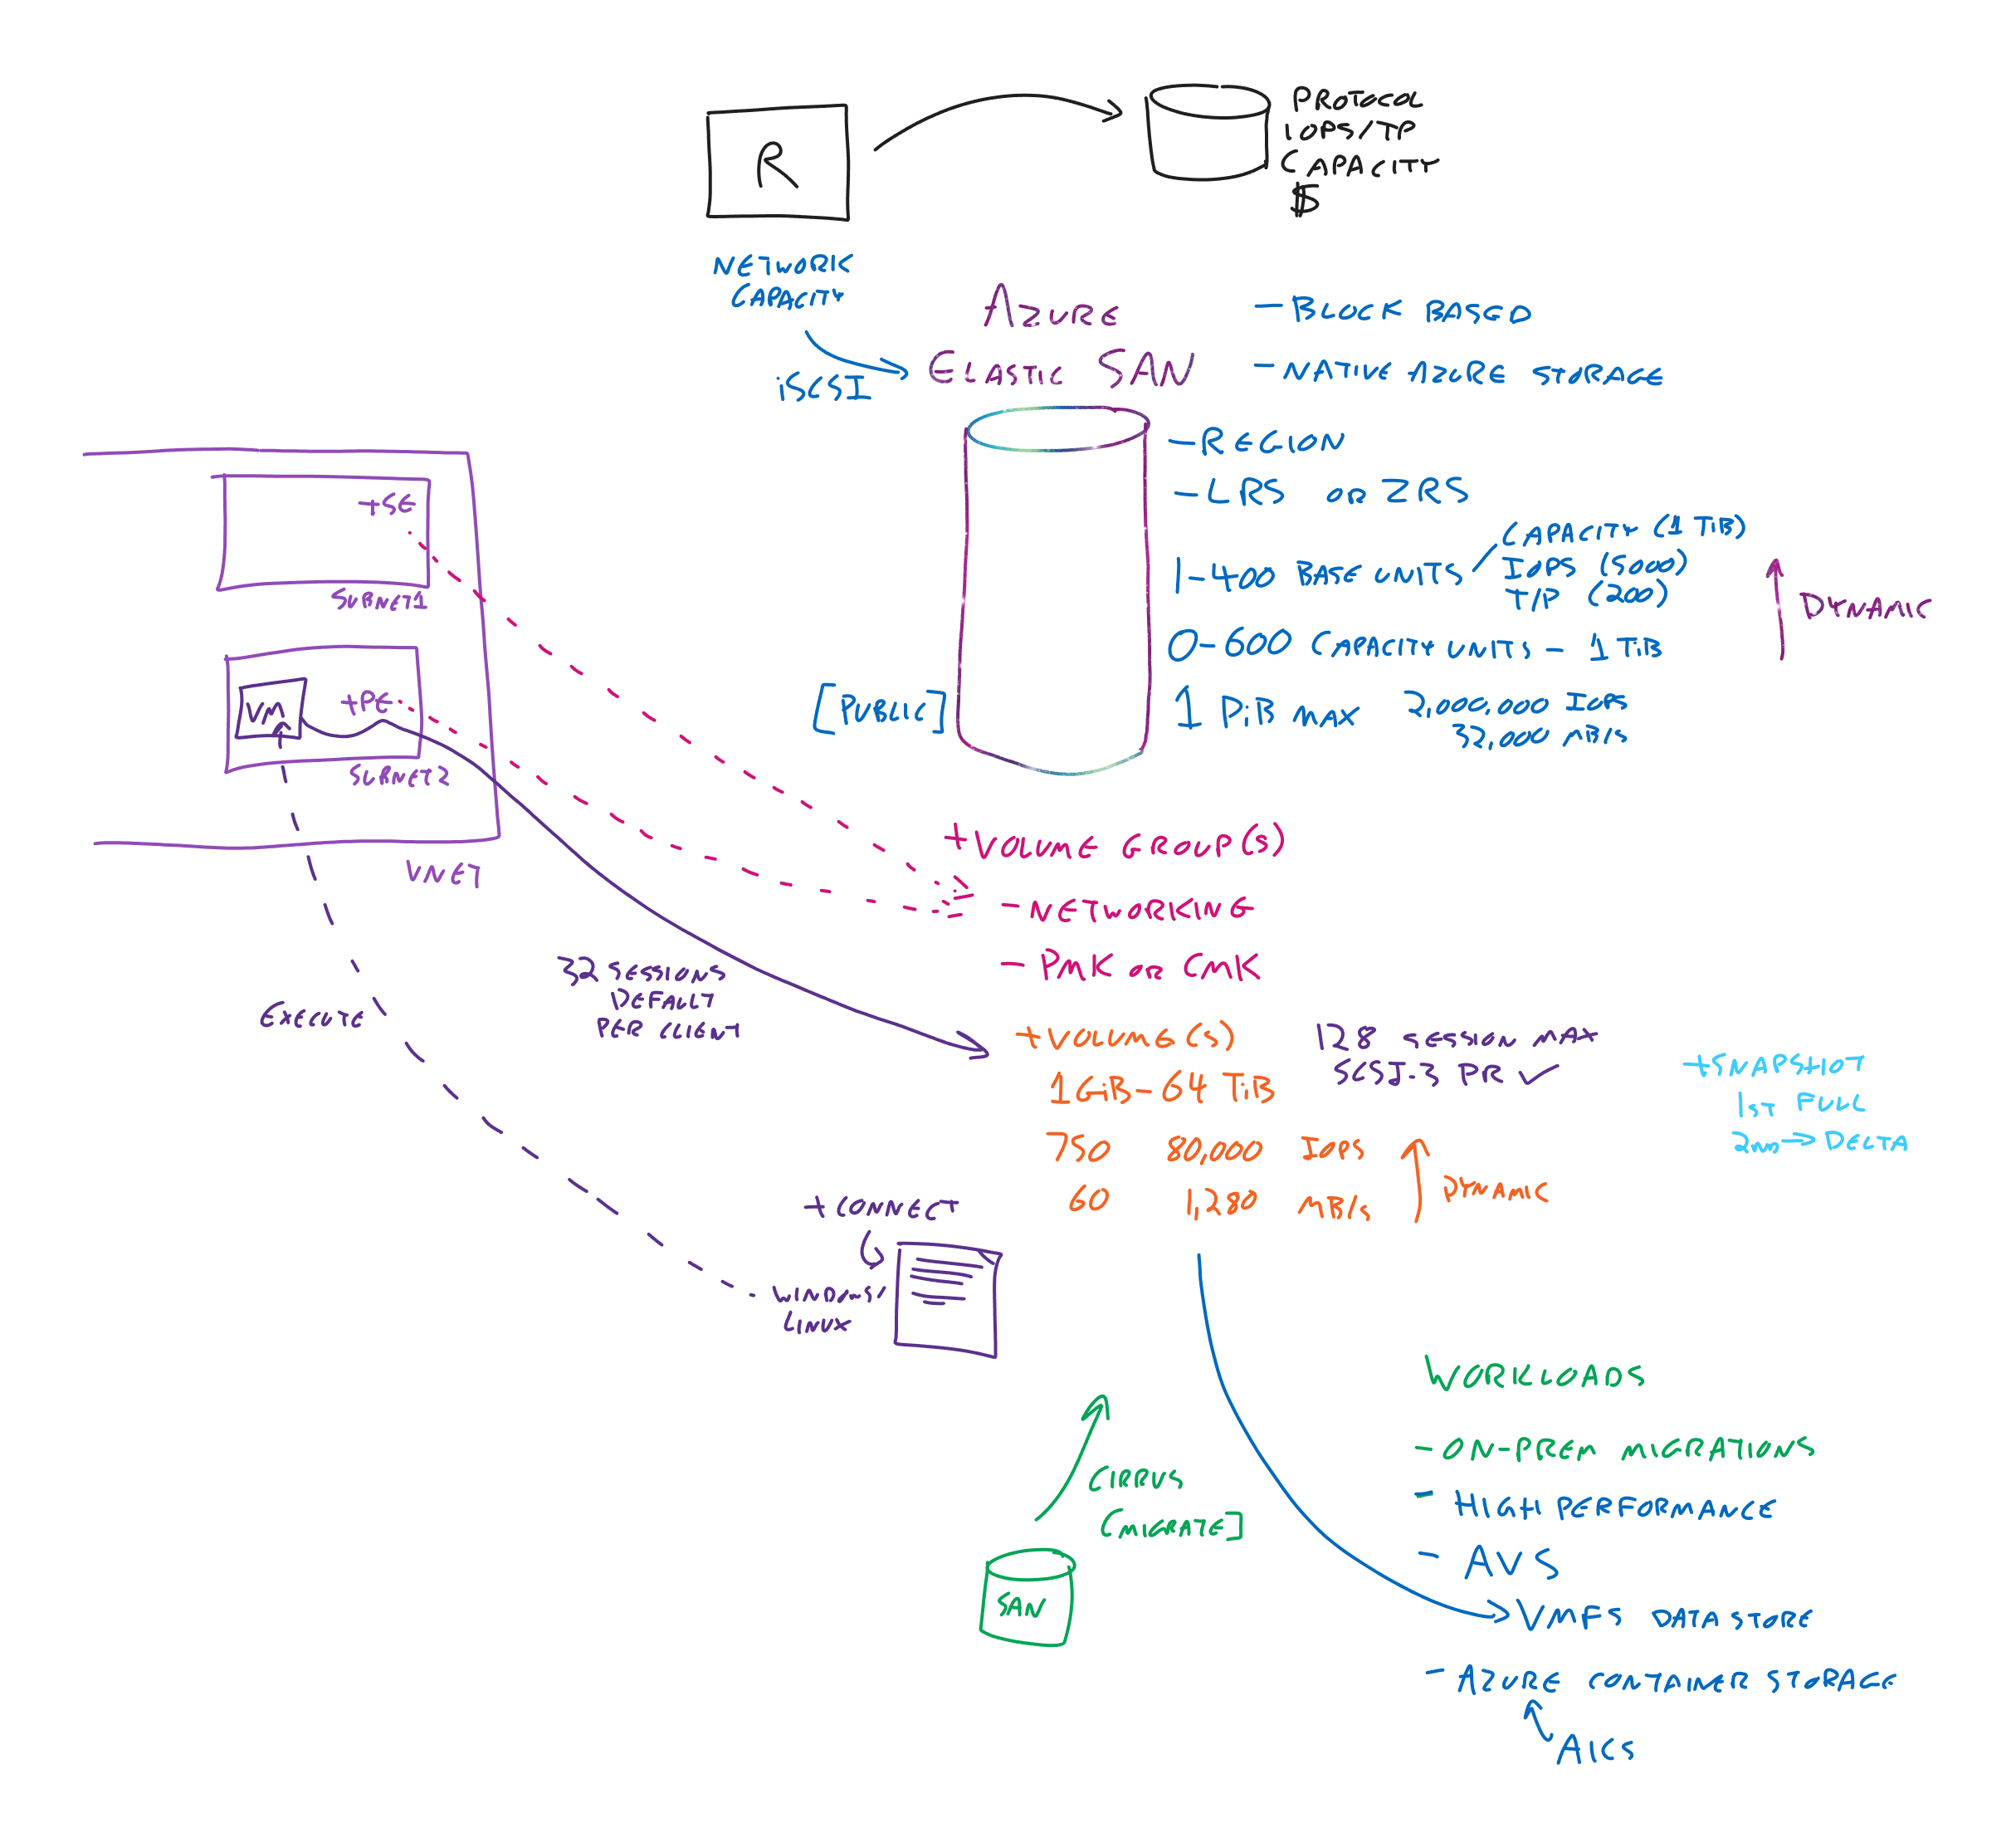 R
PROTOCOL
IOPS/TP
CAPACITY
$
NETWORK
CAPACITY
iSCSI
AZURE
ELASTIC SAN
- BLOCK BASED
- NATIVE AZURE STORAGE
- REGION
- LRS OR ZRS
1-400 BASE UNITS
CAPACITY (1 TiB)
IOPS (5000)
T/P (200)
DYNAMIC
0-600 CAPACITY UNITS - 1 TiB
1 PiB MAX 2,000,000 IOPS
32,000 MB/s
[PUBLIC]
+SE
SUBNET1
VM
+PE
SUBNET2
VNET
+VOLUME GROUP(S)
- NETWORKING
- PMK OR CMK
32 SESSIONS
DEFAULT
PER CLIENT
EXECUTE
+VOLUME(S)
1GiB-64 TiB
750 80,000 IOPS
60 1,280 MB/s
DYNAMIC
128 SESSION MAX
SCSI-3 PR ✓
+SNAPSHOT
1ST FULL
2ND→DELTA
+CONNECT
WINDOWS/
LINUX
CIRRUS
[MIGRATE]
SAN
WORKLOADS
- ON-PREM MIGRATIONS
- HIGH PERFORMANCE
- AVS
VMFS DATASTORE
- AZURE CONTAINER STORAGE